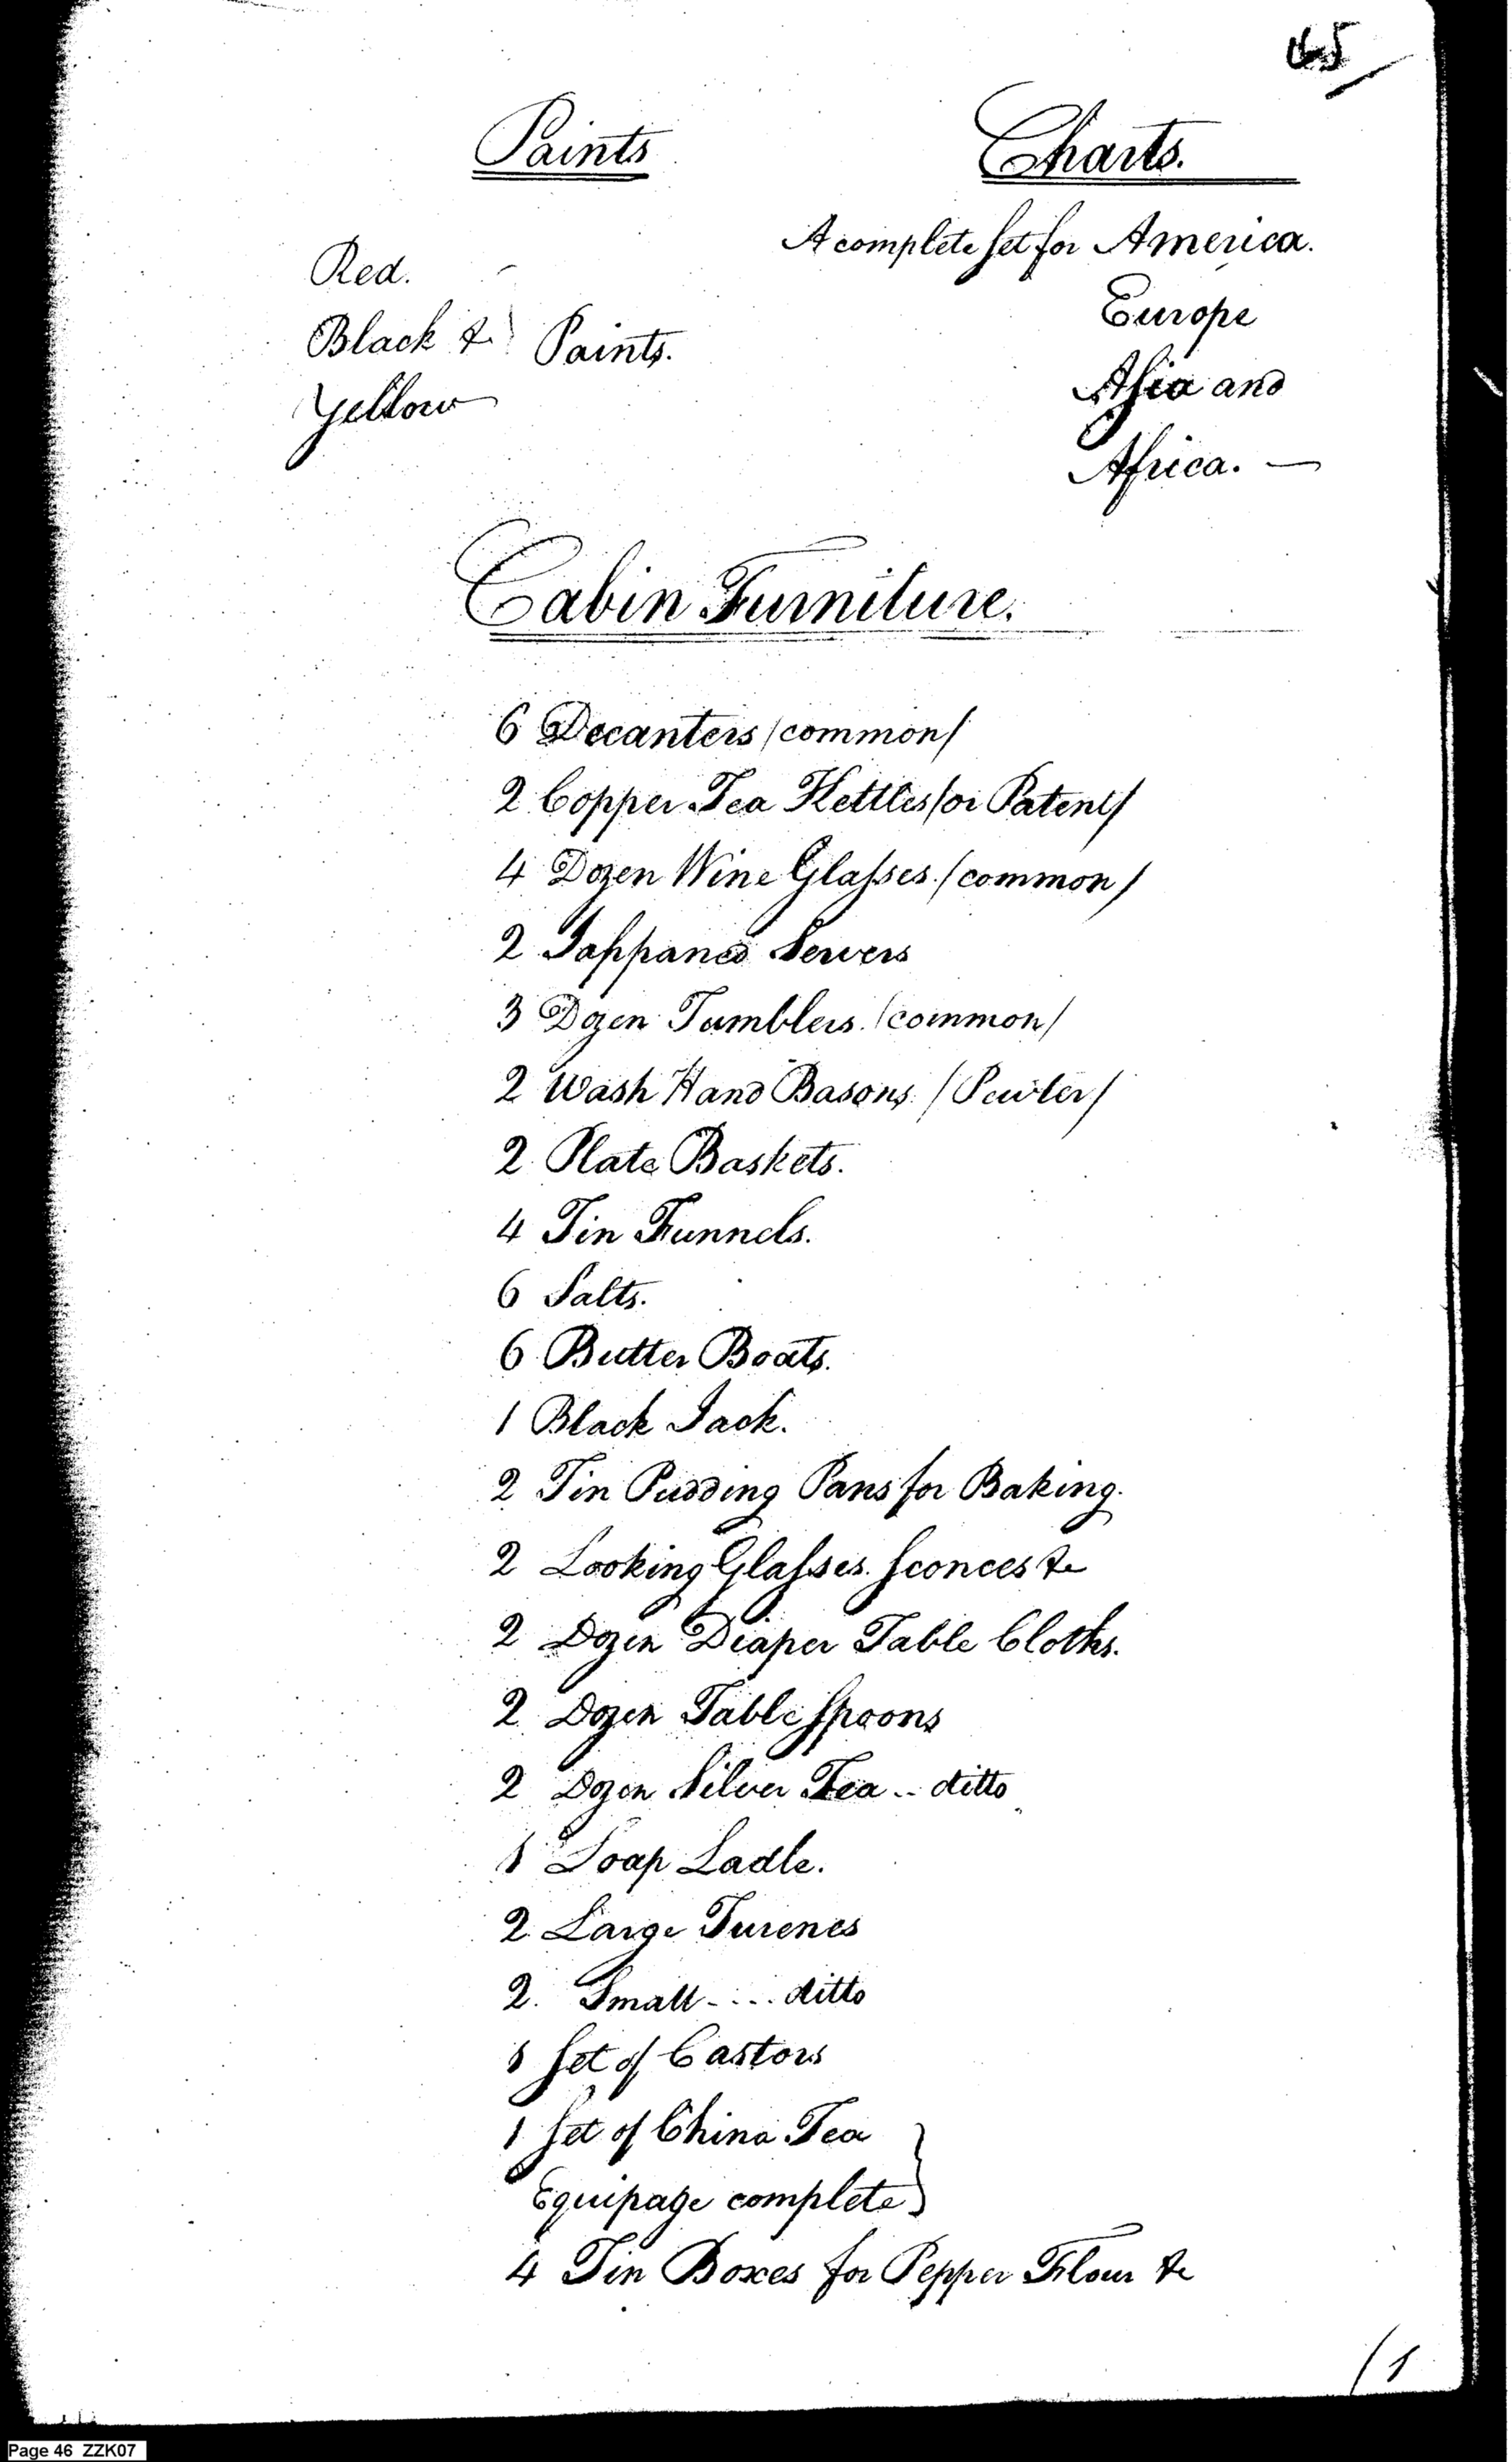 45
Paints
Red.
Black &
Yellow
Paints.
Charts.
A complete set for America.
Europe
Asia and
Africa. —
Cabin Furniture.
6 Decanters /common/
2 Copper Tea Kettles /or Patent/
4 Dozen Wine Glasses. /common/
2 Jappaned Servers
3 Dozen Tumblers. /common/
2 Wash Hand Basons. /Pewter/
2 Plate Baskets.
4 Tin Funnels.
6 Salts.
6 Butter Boats.
1 Black Jack.
2 Tin Pudding Pans for Baking.
2 Looking Glasses. Sconces &c
2 Dozen Diaper Table Cloths.
2 Dozen Table Spoons
2 Dozen Silver Tea .. ditto
1 Soap Ladle.
2 Large Turenes
2. Small - ... ditto
1 Set of Castors
1 Set of China Tea
Equipage complete
4 Tin Boxes for Pepper Flour &c
/1
Page 46 ZZK07